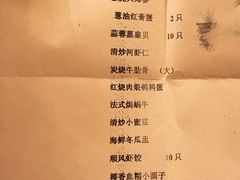 葱油红膏蟹 2只
蒜蓉蒸扇贝 10只
清炒河虾仁
炭烧牛肋骨 （大）
红烧肉煨鹌鹑蛋
法式焗蜗牛
清炒小蜜豆
海鲜冬瓜盅
顺风虾饺 10只
椰香血糯小圆子